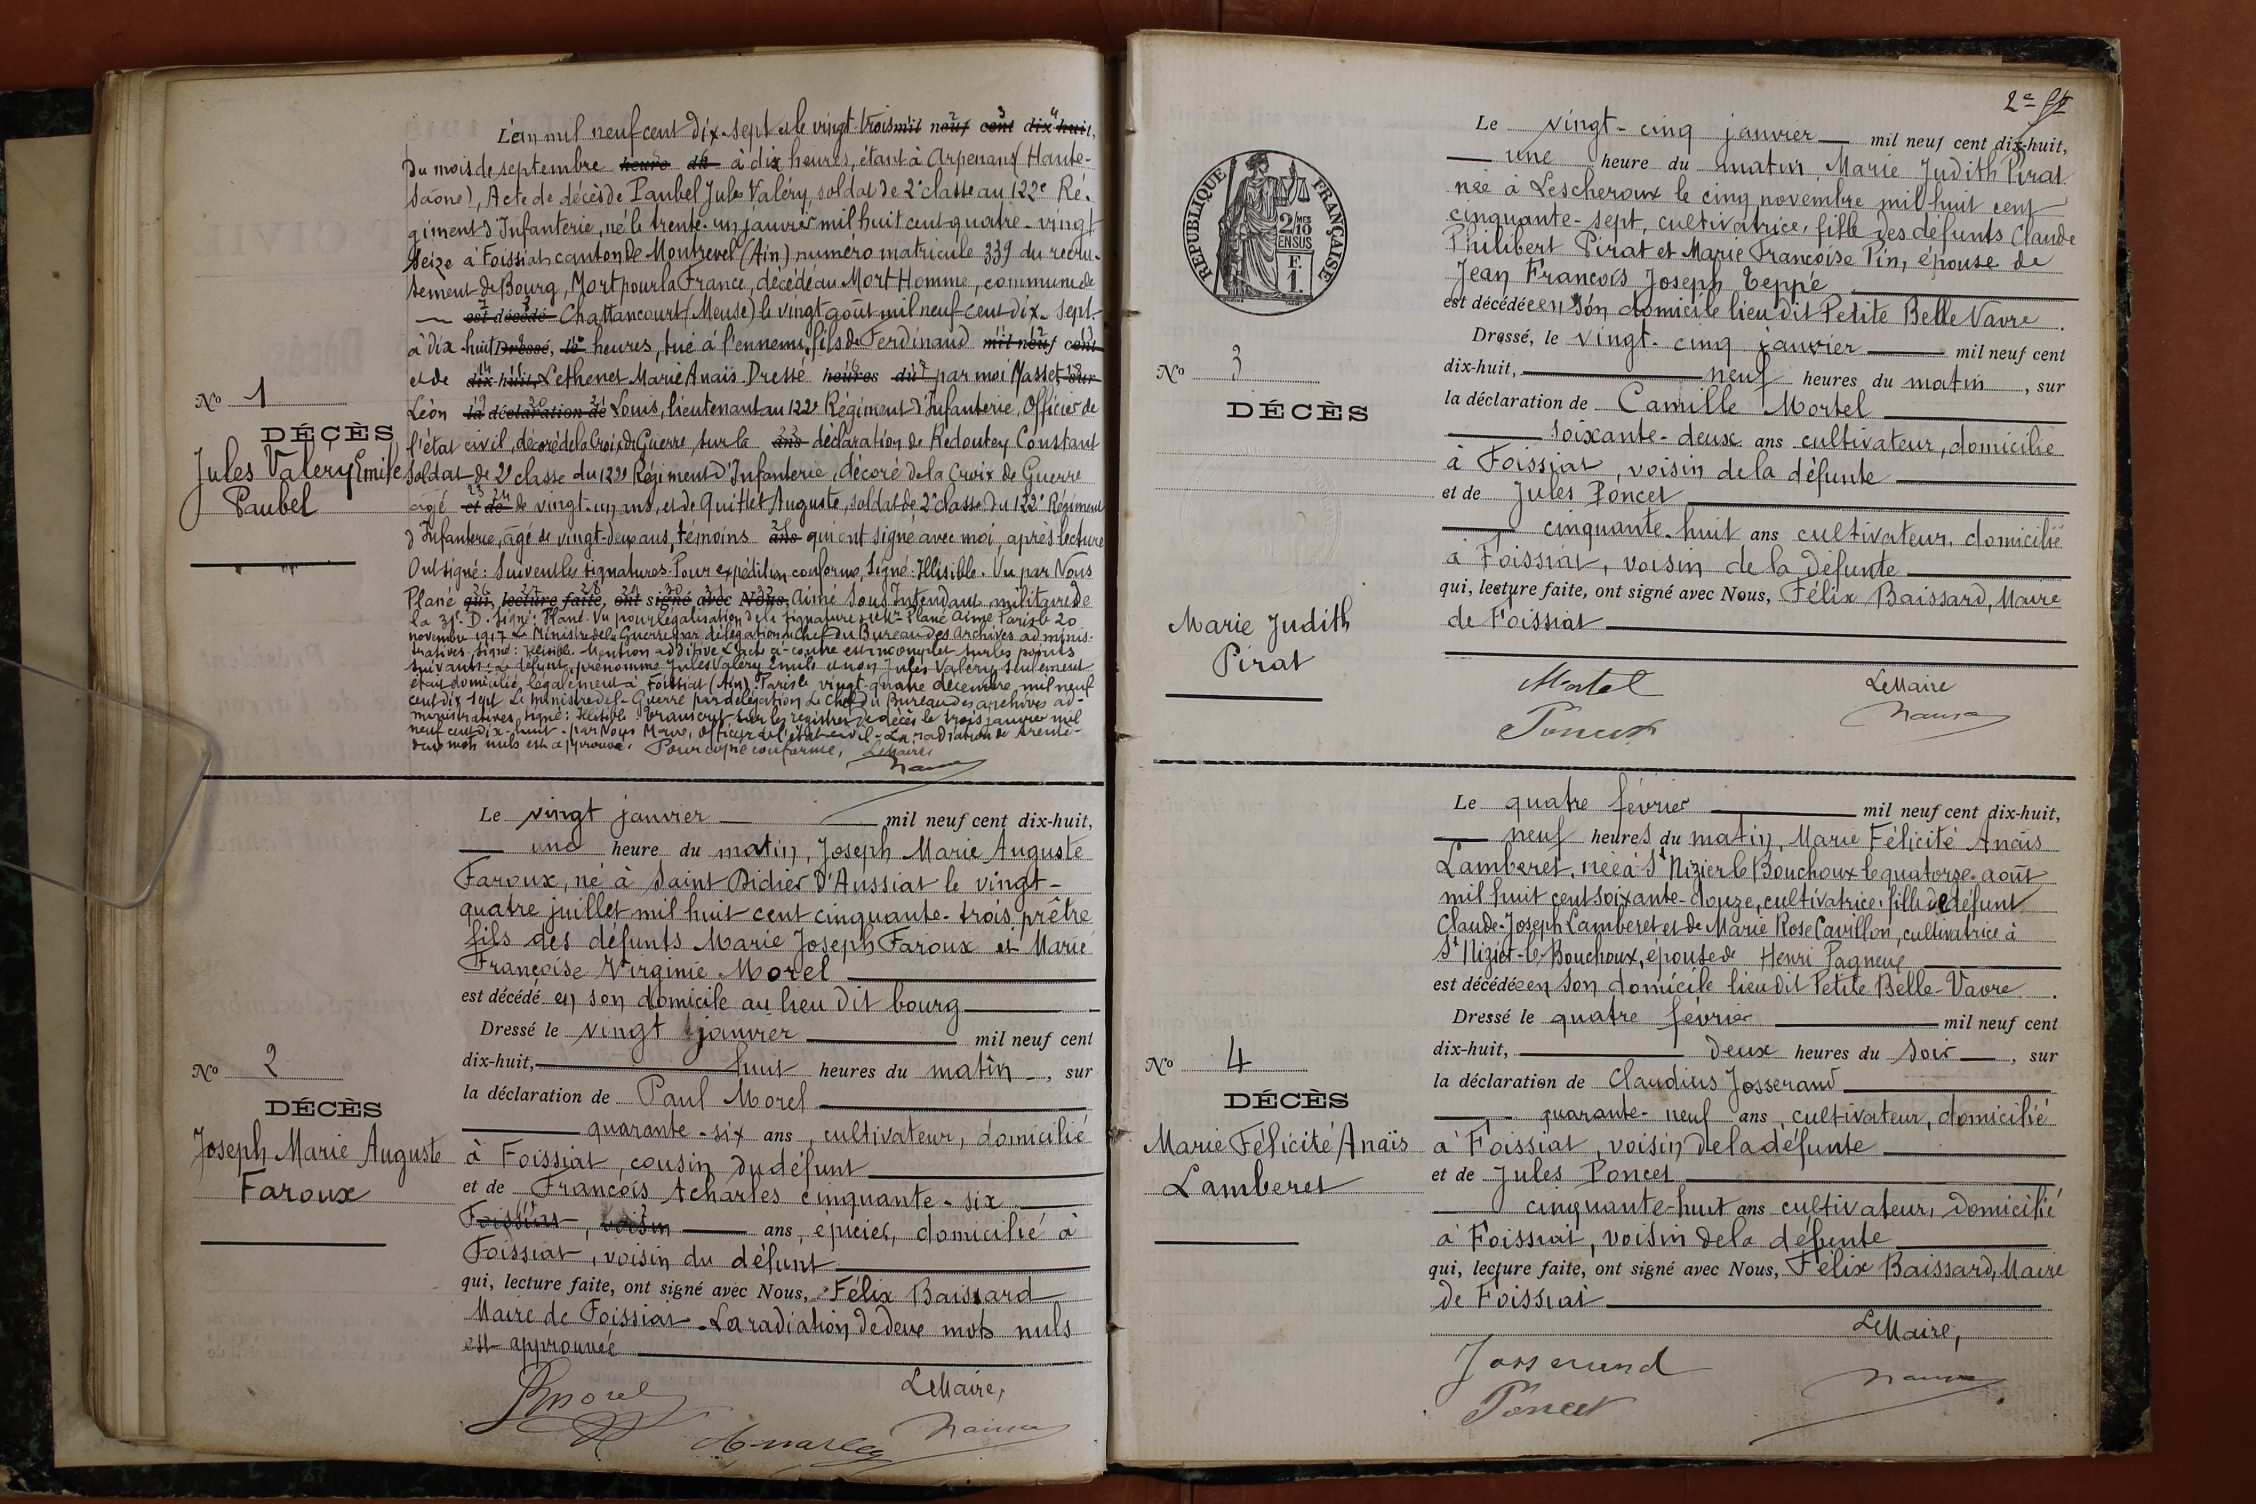 L'an mil neuf cent dix-sept et le vingt-trois mil neuf cent dix huit,
du mois de septembre heure du à dix heures, étant à Arpenans (Haute-
Saône), Acte de décès de Paubel Jules Valéry, soldat de 2e classe au 122e Ré-
giment d'Infanterie, né le trente-un janvier mil huit cent quatre-vingt
seize à Foissiat canton de Montrevel (Ain) numéro matricule 339 du recru-
tement de Bourg, Mort pour la France, décédé au Mort Homme, commune de
est décédé Chattancourt (Meuse) le vingt août mil neuf cent dix-sept
à dix-huit Dressé, le heures, tué à l'ennemi, fils de Ferdinand mil neuf cent
et de dix-huit, Lethenet Marie Anaïs Dressé heures du par moi Masset, sur
N° 1
Léon la déclaration de Louis, lieutenant au 122e Régiment d'Infanterie, Officier de
DÉCÈS
l'état civil, décoré de la Croix de Guerre, sur la ans déclaration de Redoutey Constant
Jules Valery Emile
soldat de 2e classe du 122e Régiment d'Infanterie, décoré de la Croix de Guerre
Paubel
âgé et de de vingt-un ans, et de Quittet Auguste, soldat de 2e classe du 122e Régiment
d'Infanterie, âgé de vingt-deux ans, témoins ans qui ont signé avec moi, après lecture
Ont signé: Suivent les signatures. Pour expédition conforme, Signé: Illisible. Vu par Nous
Plané qui, lecture faite, ont signé avec Nous, Aimé Sous Intendant militaire de
la 31e D. Signé: Plané. Vu pour légalisation de la signature de Mr Plané Aimé Paris le 20
novembre 1917 Le Ministre de la Guerre par délégation Le Chef du Bureau des Archives adminis-
tratives. Signé: Illisible. Mention additive L'acte ci-contre est incomplet sur les points
suivants: Le défunt, prénommé Jules Valéry Emile et non Jules Valéry seulement
était domicilié légalement à Foissiat (Ain). Paris le vingt-quatre décembre mil neuf
cent dix-sept Le Ministre de la Guerre par délégation Le Chef du Bureau des archives ad-
ministratives signé: Illisible. Transcrit sur les registres de décès le trois janvier mil
neuf cent dix-huit par Nous Maire, Officier de l'état civil - La radiation de trente-
deux mots nuls est approuvée. Pour copie conforme, Le Maire,
Le vingt janvier mil neuf cent dix-huit,
une heure du matin, Joseph Marie Auguste
Faroux, né à Saint Didier d'Aussiat le vingt-
quatre juillet mil huit cent cinquante-trois, prêtre
fils des défunts Marie Joseph Faroux et Marie
Françoise Virginie Morel
est décédé en son domicile au lieu dit bourg
Dressé le vingt janvier mil neuf cent
N° 2
dix-huit, huit heures du matin, sur
DÉCÈS
la déclaration de Paul Morel
quarante-six ans, cultivateur, domicilié
Joseph Marie Auguste
à Foissiat, cousin du défunt
Faroux
et de François Acharles cinquante-six
Foissiat, voisin ans, épicier, domicilié à
Foissiat, voisin du défunt
qui, lecture faite, ont signé avec Nous, Félix Baissard
Maire de Foissiat. La radiation de deux mots nuls
est approuvée
Le Maire,
PMorel
2e
RÉPUBLIQUE FRANÇAISE
2 MES
10
EN SUS
F.
1.
Le vingt-cinq janvier mil neuf cent dix-huit,
une heure du matin, Marie Judith Pirat
née à Lescheroux le cinq novembre mil huit cent
cinquante-sept, cultivatrice, fille des défunts Claude
Philibert Pirat et Marie Françoise Pin, épouse de
Jean François Joseph Teppé
est décédée en son domicile lieu dit Petite Belle Vavre.
Dressé, le vingt-cinq janvier mil neuf cent
N° 3
dix-huit, neuf heures du matin, sur
DÉCÈS
la déclaration de Camille Mortel
soixante-deux ans cultivateur, domicilié
à Foissiat, voisin de la défunte
et de Jules Poncet
cinquante-huit ans cultivateur, domicilié
à Foissiat, voisin de la défunte
Marie Judith
qui, lecture faite, ont signé avec Nous, Félix Baissard, Maire
Pirat
de Foissiat
Mortel
Le Maire
Poncet
Le quatre février mil neuf cent dix-huit,
neuf heures du matin, Marie Félicité Anaïs
Lamberet, née à St Nizier le Bouchoux le quatorze août
mil huit cent soixante-douze, cultivatrice, fille de défunt
Claude-Joseph Lamberet et de Marie Rose Cavillon, cultivatrice à
St Nizier-le-Bouchoux, épouse de Henri Pagneux
est décédée en son domicile lieu dit Petite Belle-Vavre.
Dressé le quatre février mil neuf cent
N° 4
dix-huit, deux heures du soir, sur
DÉCÈS
la déclaration de Claudius Josserand
quarante-neuf ans, cultivateur, domicilié
Marie Félicité Anaïs
à Foissiat, voisin de la défunte
Lamberet
et de Jules Poncet
cinquante-huit ans cultivateur, domicilié
à Foissiat, voisin de la défunte
qui, lecture faite, ont signé avec Nous, Félix Baissard, Maire
de Foissiat
Le Maire,
Josserand
Poncet